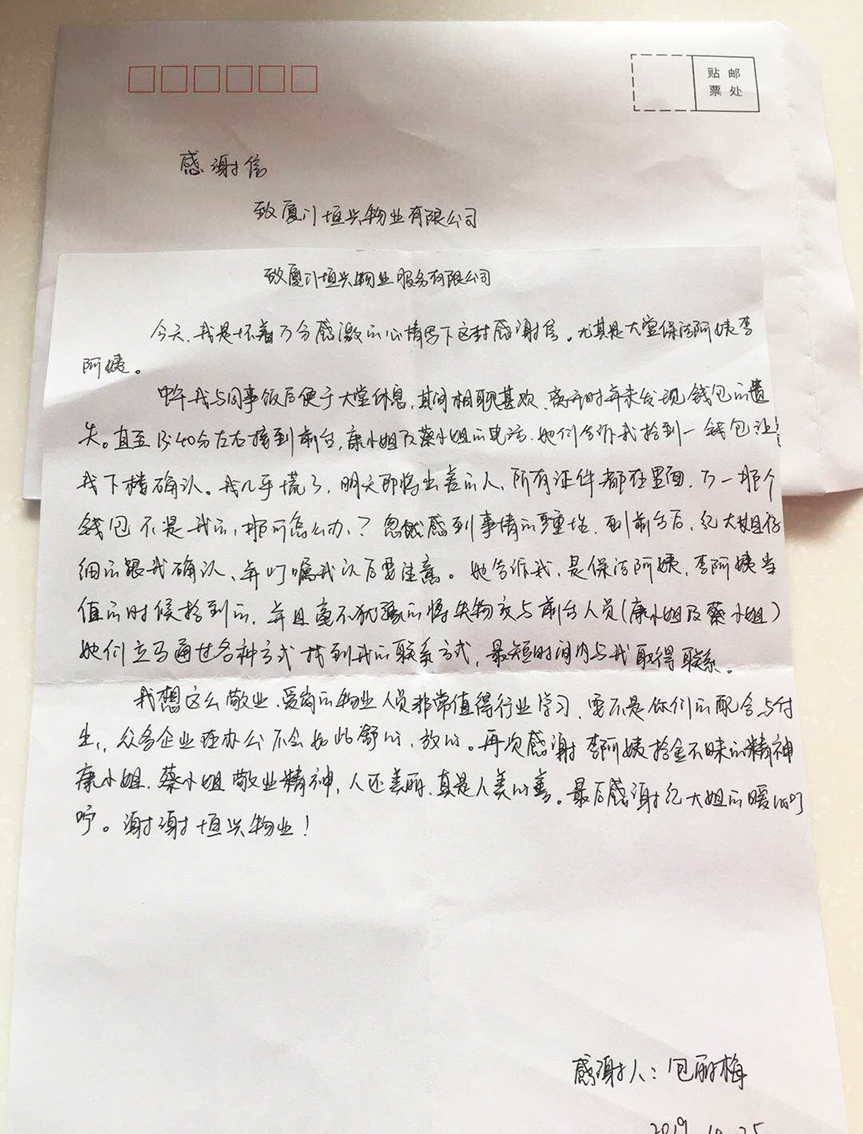 贴 邮
票 处
感谢信
致厦门恒兴物业有限公司
致厦门恒兴物业服务有限公司
今天、我是怀着万分感激的心情写下这封感谢信。尤其是大堂保洁阿姨李
阿姨。
中午我与同事饭后便于大堂休息,其间相聊甚欢、离开时并未发现钱包的遗
失。直至13:40分左右接到前台,康小姐及蔡小姐的电话,她们告诉我捡到一钱包让
我下楼确认。我几乎慌了,明天即将出差的人,所有证件都在里面,万一那个
钱包不是我的,那可怎么办、?忽然感到事情的重性,到前台后,纪大姐仔
细的跟我确认、并叮嘱我以后要注意。她告诉我,是保洁阿姨,李阿姨当
值的时候捡到的,并且毫不犹豫的将失物交与前台人员(康小姐及蔡小姐)
她们立马通过各种方式找到我的联系方式,最短时间内与我取得联系。
我想这么敬业、爱岗的物业人员非常值得行业学习,要不是你们的配合与付
出,众多企业办公不会如此舒心,放心。再次感谢李阿姨拾金不昧的精神
康小姐、蔡小姐敬业精神,人还美丽,真是人美心善。最后感谢纪大姐的暖心叮
咛。谢谢恒兴物业!
感谢人:包丽梅
2019.10.25